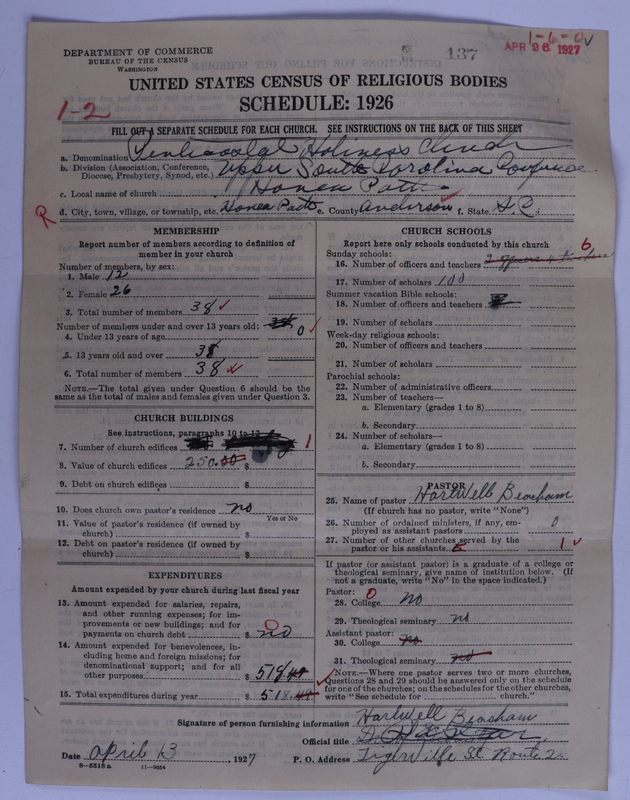 1-6-0 ✓
APR 26 1927
137
DEPARTMENT OF COMMERCE
BUREAU OF THE CENSUS
WASHINGTON
UNITED STATES CENSUS OF RELIGIOUS BODIES
1-2
SCHEDULE: 1926
FILL OUT A SEPARATE SCHEDULE FOR EACH CHURCH. SEE INSTRUCTIONS ON THE BACK OF THIS SHEET
a. Denomination Pentecostal Holiness Church
b. Division (Association, Conference, Diocese, Presbytery, Synod, etc.) Upper South Carolina Conference
c. Local name of church Honea Path
R d. City, town, village, or township, etc. Honea Path e. County Anderson f. State S.C.
MEMBERSHIP
Report number of members according to definition of
member in your church
Number of members, by sex:
1. Male 12
2. Female 26
3. Total number of members 38 ✓
Number of members under and over 13 years old:
4. Under 13 years of age 0 ✓
5. 13 years old and over 38
6. Total number of members 38 ✓
NOTE.—The total given under Question 6 should be the
same as the total of males and females given under Question 3.
CHURCH BUILDINGS
See instructions, paragraphs 10 to 13
7. Number of church edifices 1
8. Value of church edifices $ 250.00
9. Debt on church edifices $
10. Does church own pastor's residence no
Yes or No
11. Value of pastor's residence (if owned by
church) $
12. Debt on pastor's residence (if owned by
church) $
EXPENDITURES
Amount expended by your church during last fiscal year
13. Amount expended for salaries, repairs,
and other running expenses; for im-
provements or new buildings; and for
payments on church debt $ no 0
14. Amount expended for benevolences, in-
cluding home and foreign missions; for
denominational support; and for all
other purposes $ 518.
15. Total expenditures during year $ 518. ✓
CHURCH SCHOOLS
Report here only schools conducted by this church
Sunday schools: 6
16. Number of officers and teachers
17. Number of scholars 100
Summer vacation Bible schools:
18. Number of officers and teachers
19. Number of scholars
Week-day religious schools:
20. Number of officers and teachers
21. Number of scholars
Parochial schools:
22. Number of administrative officers
23. Number of teachers—
a. Elementary (grades 1 to 8)
b. Secondary
24. Number of scholars—
a. Elementary (grades 1 to 8)
b. Secondary
PASTOR
25. Name of pastor Hartwell Beacham
(If church has no pastor, write "None")
26. Number of ordained ministers, if any, em-
ployed as assistant pastors 0
27. Number of other churches served by the
pastor or his assistants 1 ✓
If pastor (or assistant pastor) is a graduate of a college or
theological seminary, give name of institution below. (If
not a graduate, write "No" in the space indicated.)
Pastor: 0
28. College no
29. Theological seminary no
Assistant pastor:
30. College no
31. Theological seminary no
NOTE.—Where one pastor serves two or more churches,
Questions 28 and 29 should be answered only on the schedule
for one of the churches; on the schedules for the other churches,
write "See schedule for church."
Signature of person furnishing information Hartwell Beacham
Official title
Date April 13, 1927 P. O. Address Tigerville SC Route 2
8-5515a 11-9054